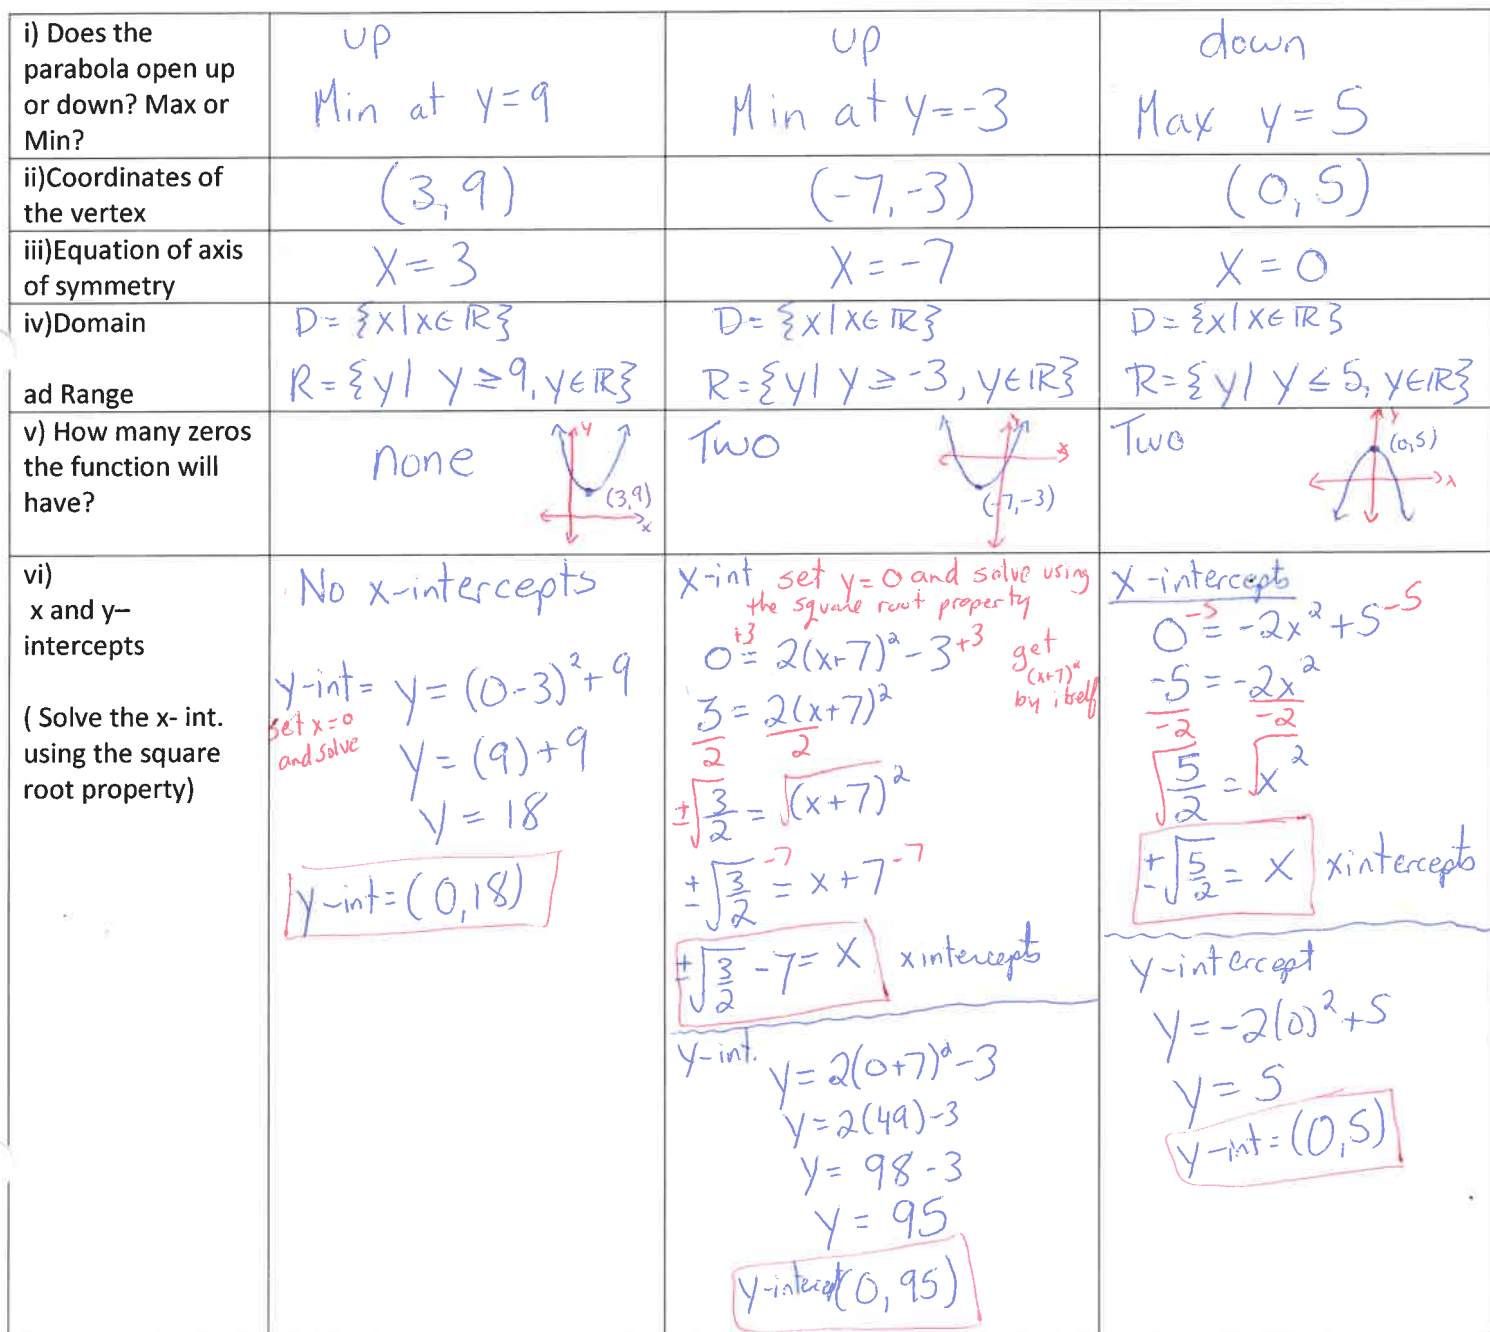 i) Does the
parabola open up
or down? Max or
Min?
up
Min at y=9
up
Min at y=-3
down
Max y=5
ii)Coordinates of
the vertex
(3,9)
(-7,-3)
(0,5)
iii)Equation of axis
of symmetry
X=3
X=-7
X=0
iv)Domain
ad Range
D={x|x∈ℝ}
R={y| y≥9, y∈ℝ}
D={x|x∈ℝ}
R={y| y≥-3, y∈ℝ}
D={x|x∈ℝ}
R={y| y≤5, y∈ℝ}
v) How many zeros
the function will
have?
none
y
(3,9)
x
Two
y
x
(-7,-3)
Two
y
(0,5)
x
vi)
x and y–
intercepts
( Solve the x- int.
using the square
root property)
No x-intercepts
y-int= y=(0-3)²+9
set x=0
and solve
y=(9)+9
y=18
y-int=(0,18)
X-int set y=0 and solve using
the square root property
0+3=2(x+7)²-3+3
get
(x+7)²
by itself
3/2=2(x+7)²/2
±√3/2=√(x+7)²
±√3/2-7=x+7-7
±√3/2-7=X x intercepts
y-int.
y=2(0+7)²-3
y=2(49)-3
y=98-3
y=95
y-intercept(0,95)
X-intercepts
0-5=-2x²+5-5
-5/-2=-2x²/-2
√5/2=√x²
±√5/2=X x intercepts
y-intercept
y=-2(0)²+5
y=5
y-int=(0,5)